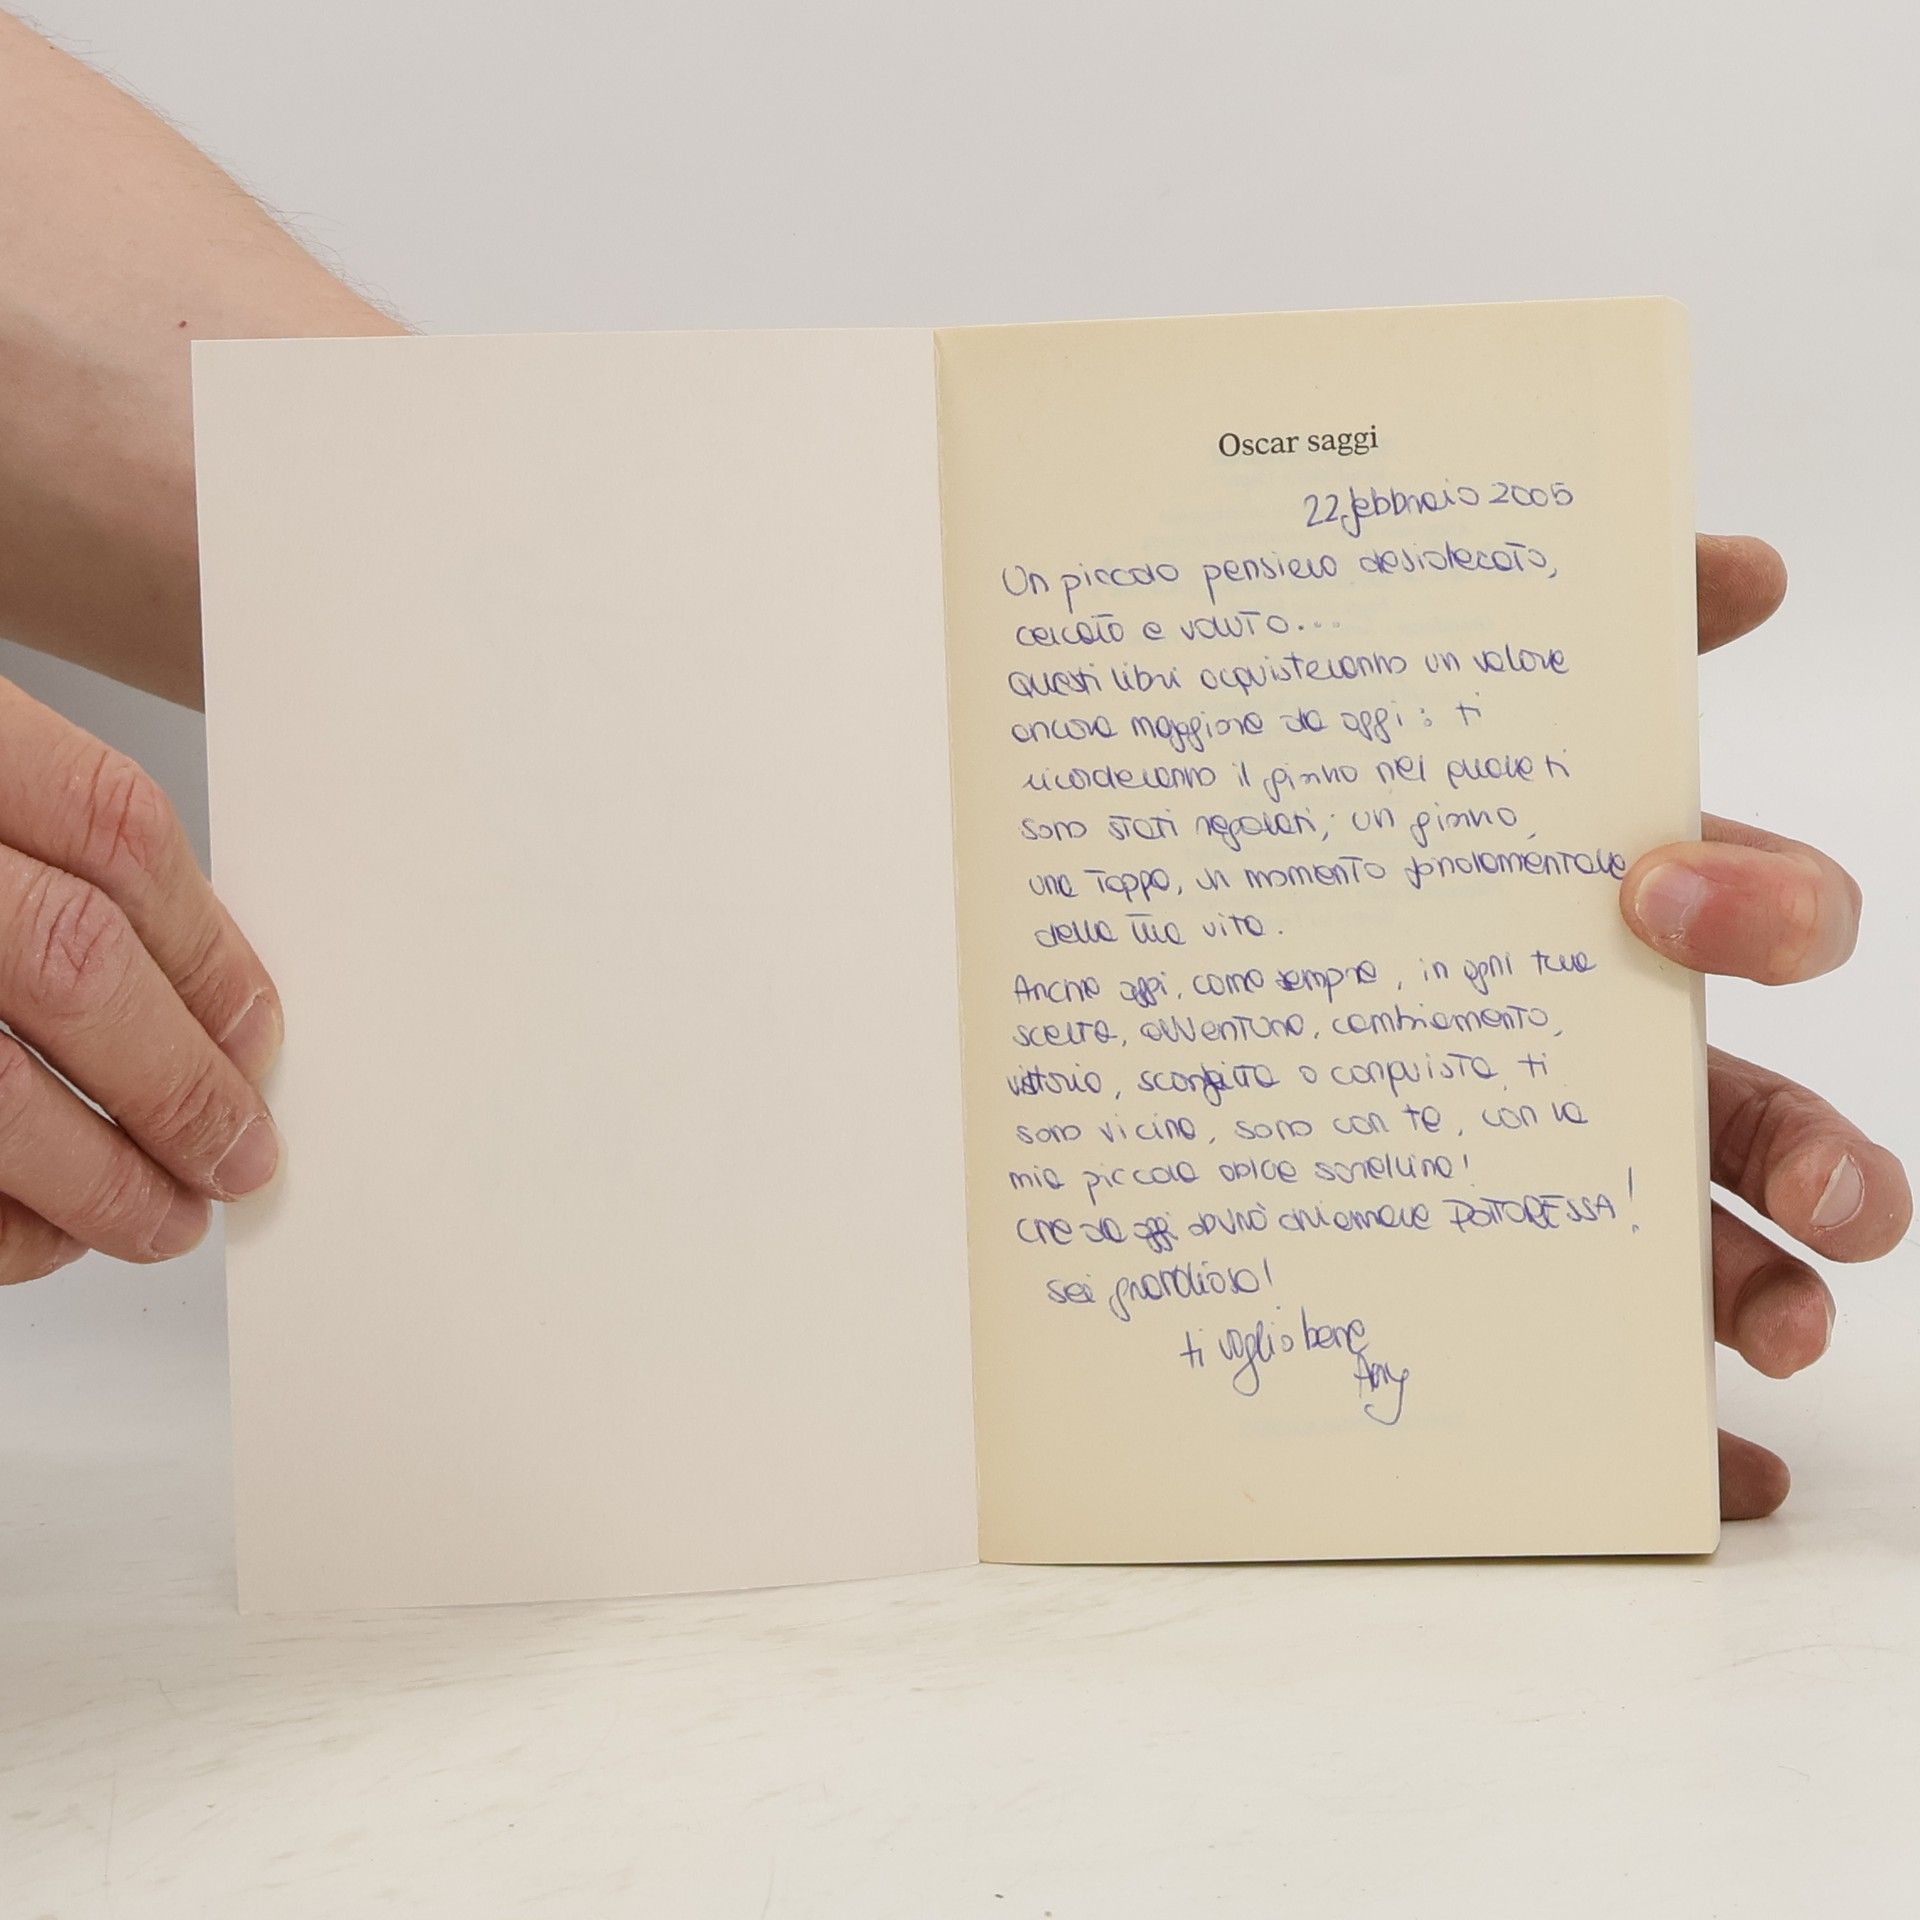 Oscar saggi
22 febbraio 2005
Un piccolo pensiero desiderato,
cercato e voluto...
questi libri acquisteranno un valore
ancora maggiore da oggi: ti
ricorderanno il giorno nel quale ti
sono stati regalati; un giorno,
una tappa, un momento fondamentale
della tua vita.
Anche oggi, come sempre, in ogni tua
scelta, avventura, cambiamento,
vittoria, sconfitta o conquista, ti
sono vicina, sono con te, con la
mia piccola dolce sorellina!
Che da oggi dovrò chiamare DOTTORESSA!
Sei grandiosa!
ti voglio bene